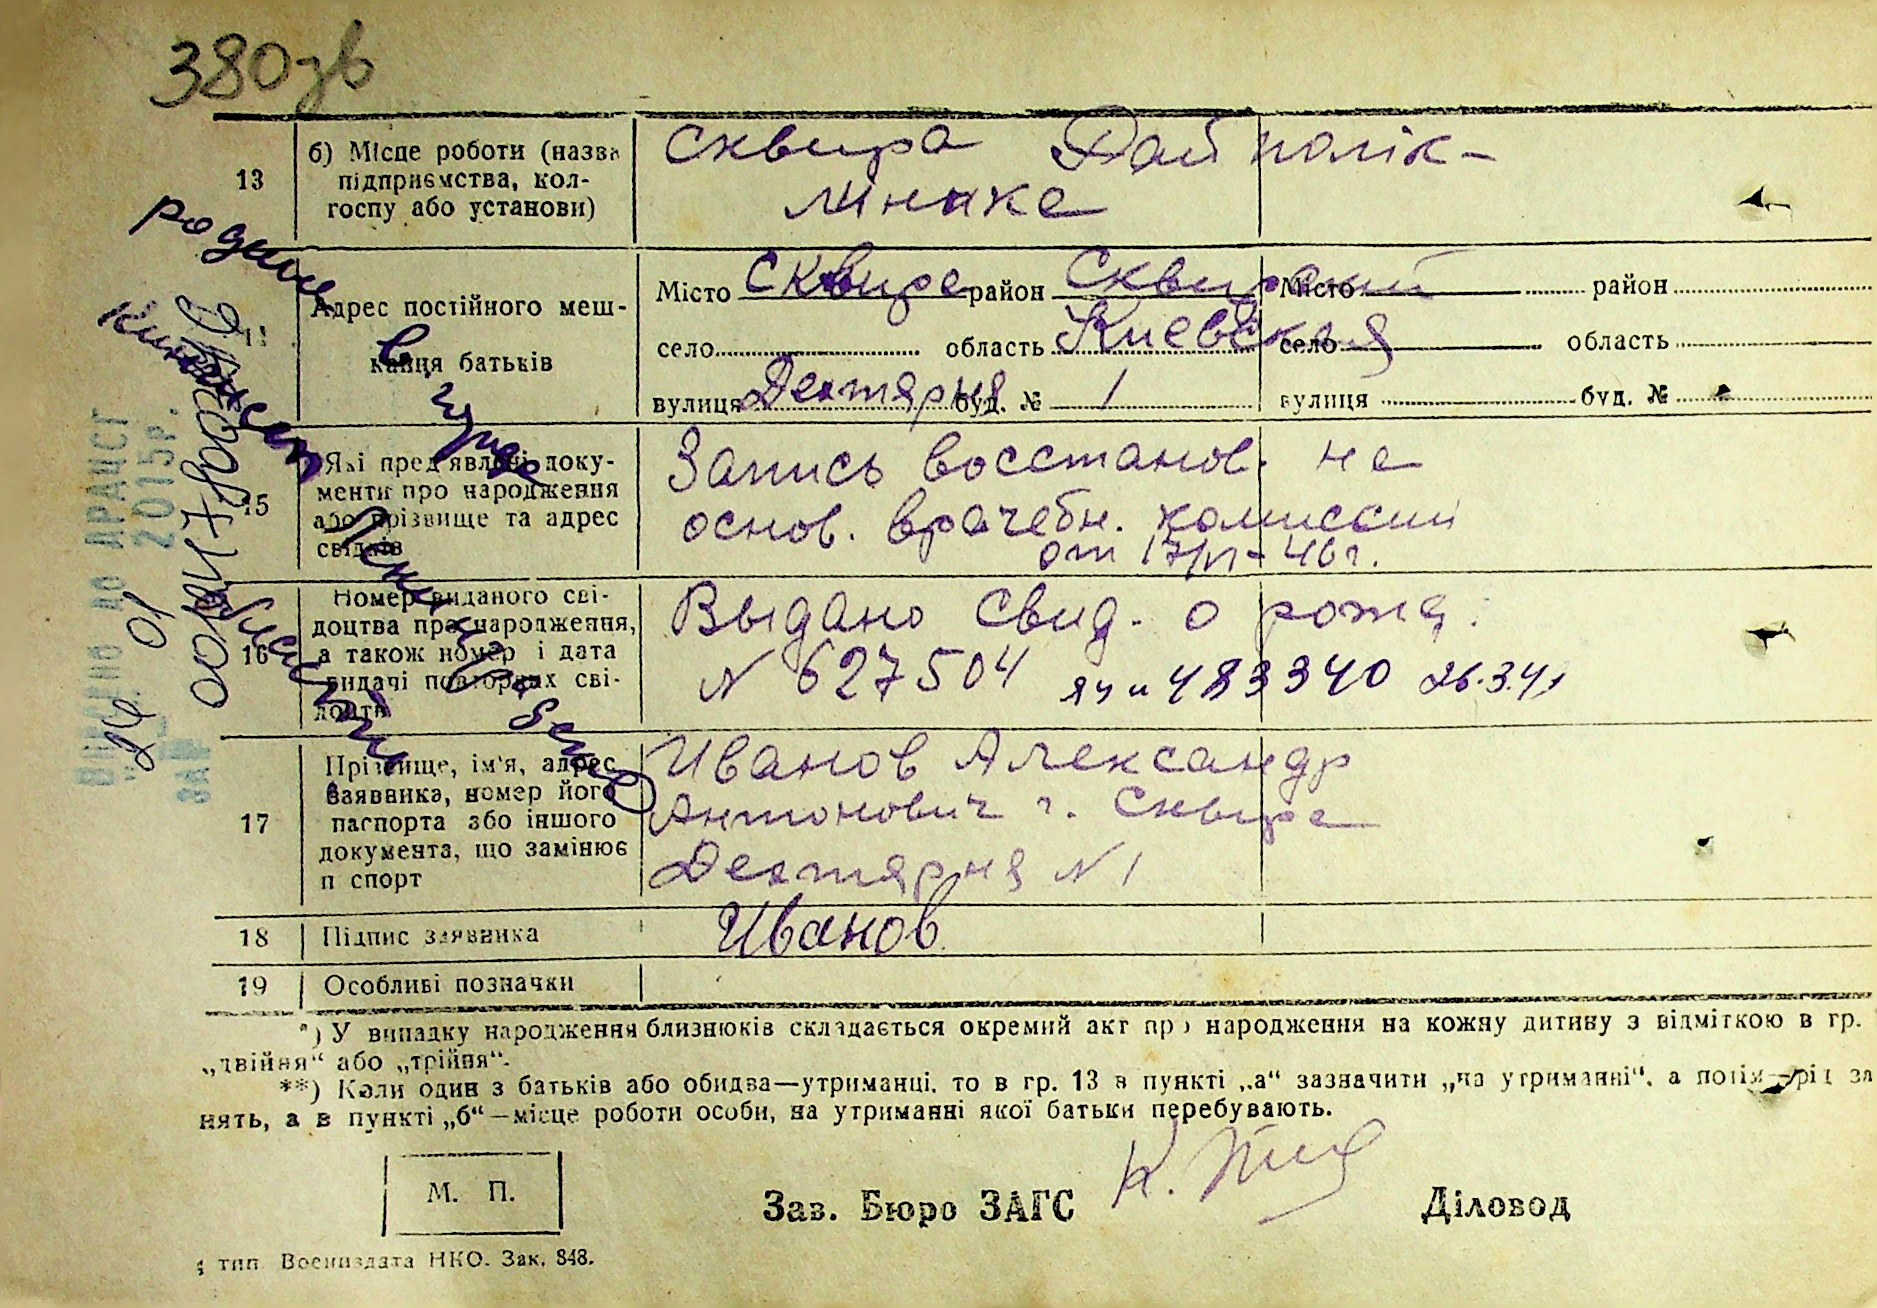 380зв
13
б) Місце роботи (назва
підприємства, кол-
госпу або установи)
Сквира Рай полік-
линике
Адрес постійного меш-
канця батьків
Місто Сквире район Сквирский
село область Киевская
вулиця Дехтярня буд. № 1
Місто район
село область
вулиця буд. №
15
Які пред'явлені доку-
менти про народження
або прізвище та адрес
свідків
Запись восстанов. не
основ. врачебн. комиссии
от 17/VI - 46 г.
16
Номер виданого сві-
доцтва про народження,
а також номер і дата
видачі повторних сві-
доцтв
Выдано свид. о рожд.
N 627504 ЯЧ и 483340
17
Прізвище, ім'я, адрес
заявника, номер його
паспорта або іншого
документа, що замінює
п спорт
Иванов Александр
Антонович г. Сквире
Дехтярня N 1
18 Підпис заявника
Иванов
19 Особливі позначки
*) У випадку народження близнюків складається окремий акт про народження на кожну дитину з відміткою в гр.
„двійня“ або „трійня“.
**) Коли один з батьків або обидва—утриманці, то в гр. 13 в пункті „а“ зазначити „на утриманні“, а потім рід за
нять, а в пункті „б“—місце роботи особи, на утриманні якої батьки перебувають.
М. П.
Зав. Бюро ЗАГС
Діловод
тип. Воениздата НКО. Зак. 848.
ДРАЦСГ
2015р.